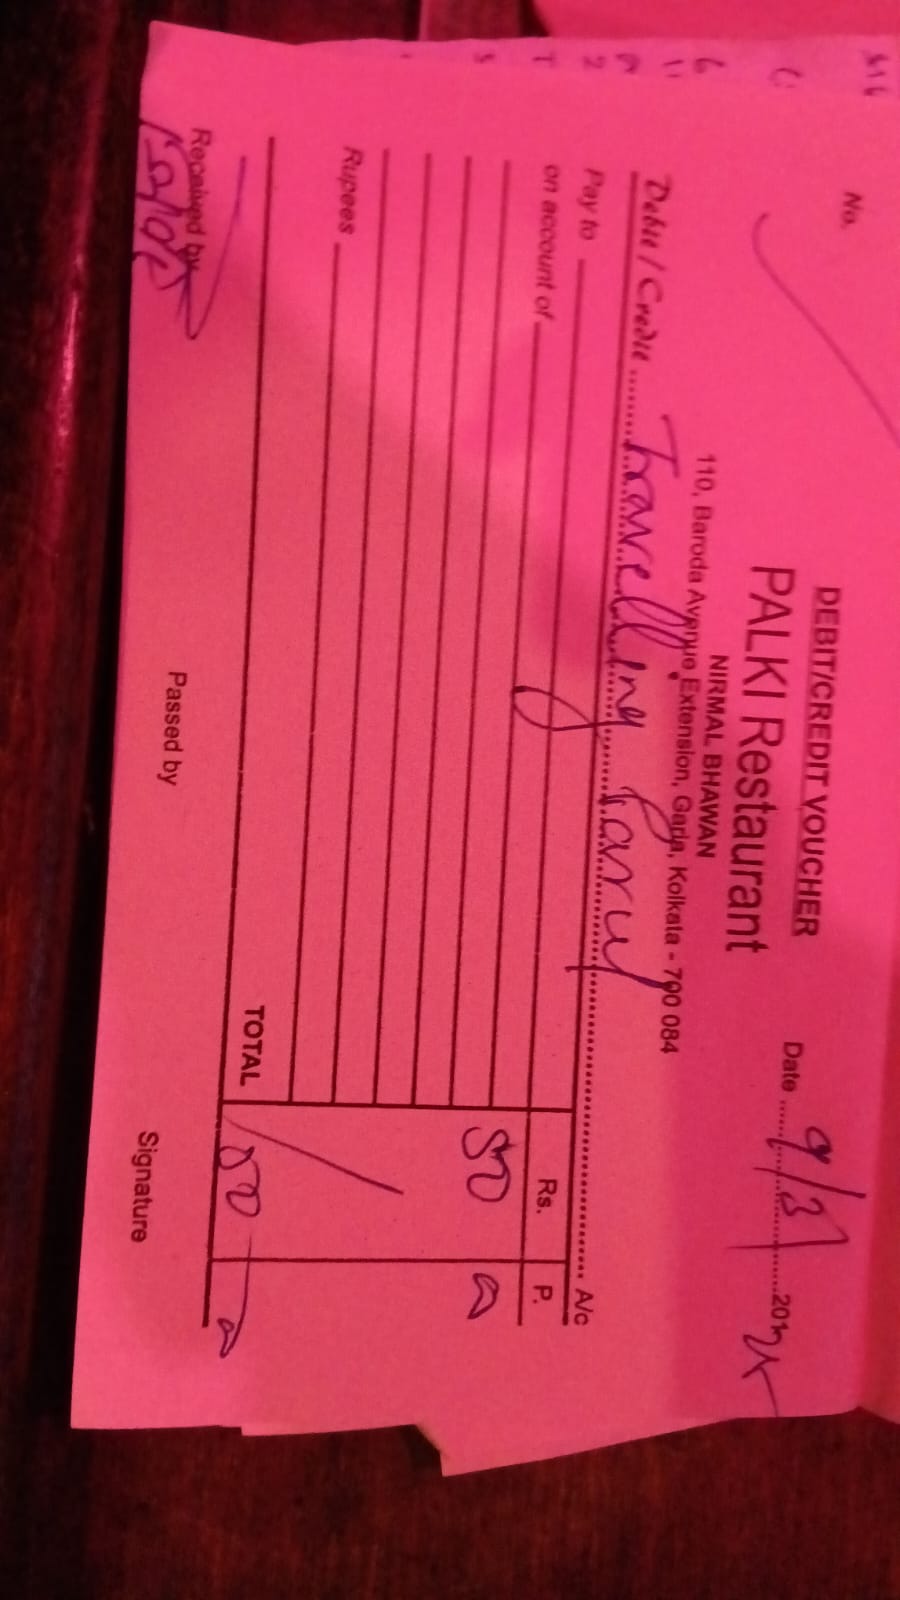 DEBIT/CREDIT VOUCHER
No.
PALKI Restaurant
Date ........ 9/3 ........ 20
NIRMAL BHAWAN
110, Baroda Avenue Extension, Garia, Kolkata - 700 084
Debit / Credit ........ Travelling ........ A/c
Pay to
on account of
Rs. P.
50 0
Rupees
TOTAL 50 0
Received by
Passed by
Signature